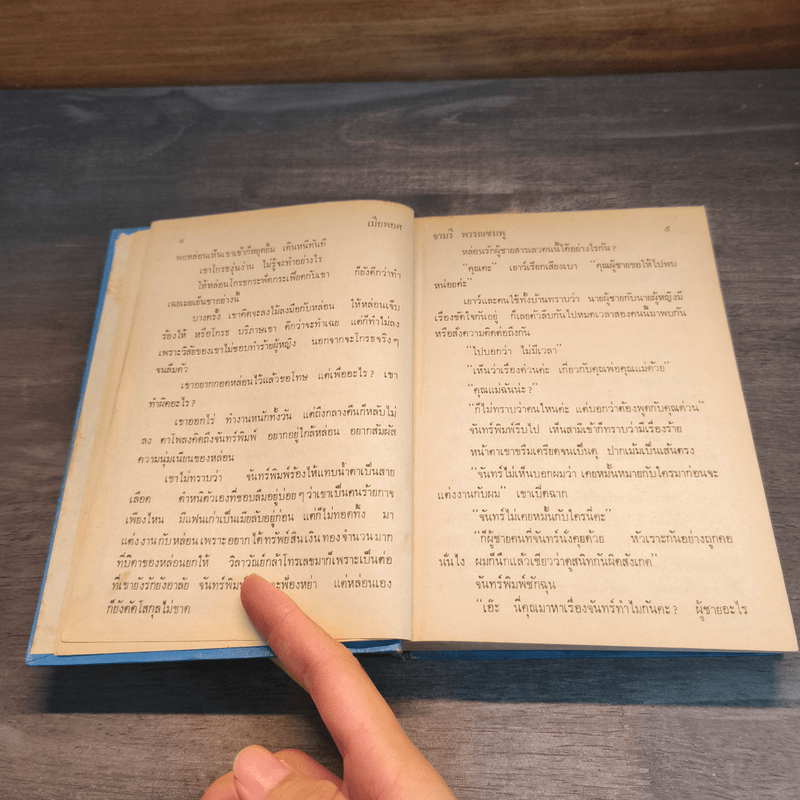 ๘ เมียพยศ
พอหล่อนเห็นเขาเข้าก็หยุดยิ้ม เดินหนีทันที
เขาโกรธงุ่นง่าน ไม่รู้จะทำอย่างไร
ให้หล่อนโกรธกระฟัดกระเฟียดกับเขา ก็ยังดีกว่าทำ
เฉยเมยเย็นชาอย่างนี้
บางครั้ง เขาคิดจะลงไม้ลงมือกับหล่อน ให้หล่อนเจ็บ
ร้องไห้ หรือโกรธ บริภาษเขา ดีกว่าจะทำเฉย แต่ก็ทำไม่ลง
เพราะวิสัยของเขาไม่ชอบทำร้ายผู้หญิง นอกจากจะโกรธจริงๆ
จนลืมตัว
เขาอยากกอดหล่อนไว้แล้วขอโทษ แต่เพื่ออะไร? เขา
ทำผิดอะไร?
เขาอกไร่ ทำงานหนักทั้งวัน แต่ถึงกลางคืนก็หลับไม่
ลง ตาโพลงคิดถึงจันทร์พิมพ์ อยากอยู่ใกล้หล่อน อยากสัมผัส
ความนุ่มเนียนของหล่อน
เขาไม่ทราบว่า จันทร์พิมพ์ร้องไห้แทบน้ำตาเป็นสาย
เลือด ตำหนิตัวเองที่ชอบลืมอยู่บ่อยๆ ว่าเขาเป็นคนร้ายกาจ
เพียงไหน มีแฟนเก่าเป็นเมียลับอยู่ก่อน แต่ก็ไม่ทอดทิ้ง มา
แต่งงานกับหล่อนเพราะอยากได้ทรัพย์สินเงินทองจำนวนมาก
ที่บิดาของหล่อนยกให้ วิลาวัณย์กล้าโทรเลขมาก็เพราะเป็นต่อ
ที่เขายังรักยังอาลัย จันทร์พิมพ์ จะฟ้องหย่า แต่หล่อนเอง
ก็ยังตัดโสกุลไม่ขาด
จามรี พรรณชมพู ๙
หล่อนรักผู้ชายสารเลวคนนี้ได้อย่างไรกัน?
“คุณคะ” เยาว์เรียกเสียงเบา “คุณผู้ชายขอให้ไปพบ
หน่อยค่ะ”
เยาว์และคนใช้ทั้งบ้านทราบว่า นายผู้ชายกับนายผู้หญิงมี
เรื่องขัดใจกันอยู่ ก็เลยตัวลีบกันไปหมดเวลาสองคนนี้มาพบกัน
หรือสั่งความติดต่อถึงกัน
“ไปบอกว่า ไม่มีเวลา”
“เห็นว่าเรื่องด่วนค่ะ เกี่ยวกับคุณพ่อคุณแม่ด้วย”
“คุณแม่ฉันน่ะ?”
“ก็ไม่ทราบว่าคนไหนค่ะ แต่บอกว่าต้องพูดกับคุณด่วน”
จันทร์พิมพ์รีบไป เห็นสามีเข้าก็ทราบว่ามีเรื่องร้าย
หน้าตาเขาขรึมเครียดจนเป็นดุ ปากเม้มเป็นเส้นตรง
“จันทร์ไม่เห็นบอกผมว่า เคยหมั้นหมายกับใครมาก่อนจะ
แต่งงานกับผม” เขาเปิดฉาก
“จันทร์ไม่เคยหมั้นกับใครนี่คะ”
“ก็ผู้ชายคนที่จันทร์นั่งคุยด้วย หัวเราะกันอย่างถูกคอ
นั่นไง ผมก็นึกแล้วเชียวว่าดูสนิทกันผิดสังเกต”
จันทร์พิมพ์ชักฉุน
“เอ๊ะ นี่คุณมาหาเรื่องจันทร์ทำไมกันคะ? ผู้ชายอะไร